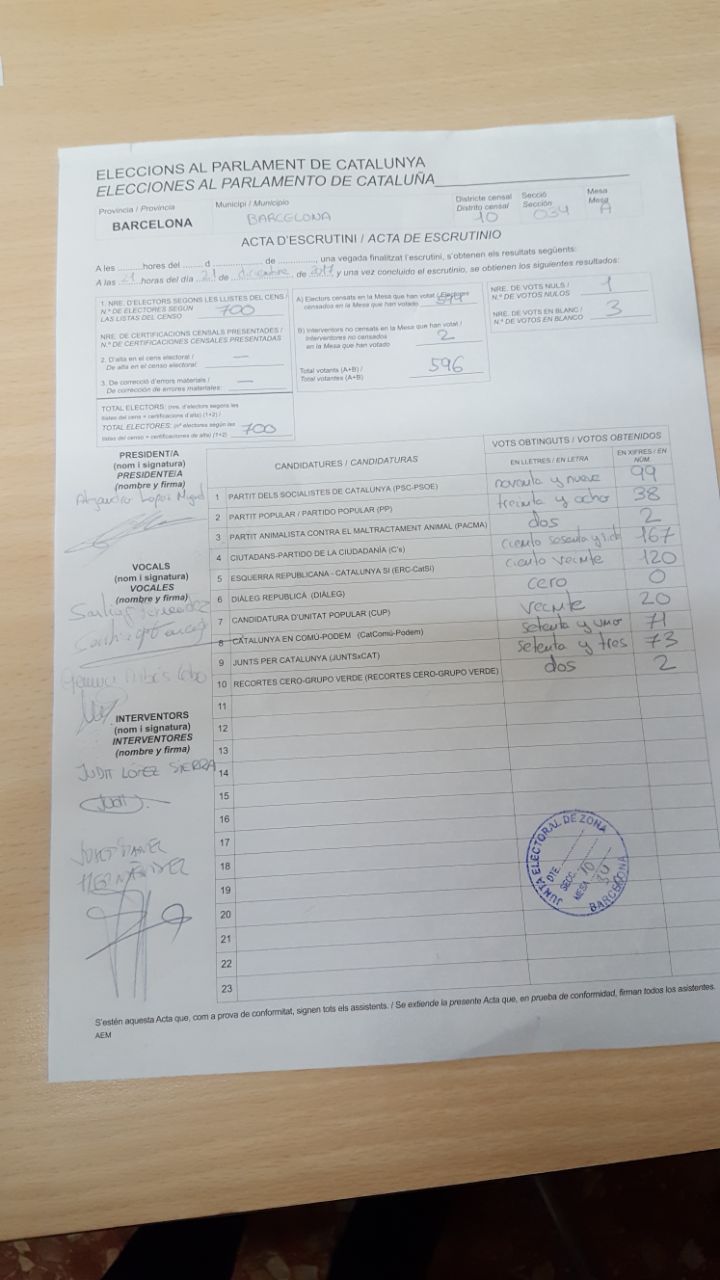 ELECCIONS AL PARLAMENT DE CATALUNYA
ELECCIONES AL PARLAMENTO DE CATALUÑA
Província / Provincia
BARCELONA
Municipi / Municipio
BARCELONA
Districte censal
Distrito censal
10
Secció
Sección
034
Mesa
Mesa
A
ACTA D'ESCRUTINI / ACTA DE ESCRUTINIO
A les ........hores del ....... d ................ de .............., una vegada finalitzat l'escrutini, s'obtenen els resultats següents:
A las 21 horas del día 21 de diciembre de 2017 y una vez concluido el escrutinio, se obtienen los siguientes resultados:
1. NRE. D'ELECTORS SEGONS LES LLISTES DEL CENS /
N.º DE ELECTORES SEGÚN
LAS LISTAS DEL CENSO
700
NRE. DE CERTIFICACIONS CENSALS PRESENTADES /
N.º DE CERTIFICACIONES CENSALES PRESENTADAS
2. D'alta en el cens electoral /
De alta en el censo electoral: —
3. De correcció d'errors materials /
De corrección de errores materiales: —
TOTAL ELECTORS: (nre. d'electors segons les
llistes del cens + certificacions d'alta) (1+2) /
TOTAL ELECTORES: (nº electores según las
listas del censo + certificaciones de alta) (1+2)
700
A) Electors censats en la Mesa que han votat / Electores
censados en la Mesa que han votado
B) Interventors no censats en la Mesa que han votat /
Interventores no censados
en la Mesa que han votado
2
Total votants (A+B) /
Total votantes (A+B)
596
NRE. DE VOTS NULS /
N.º DE VOTOS NULOS
1
NRE. DE VOTS EN BLANC /
N.º DE VOTOS EN BLANCO
3
PRESIDENT/A
(nom i signatura)
PRESIDENTE/A
(nombre y firma)
VOCALS
(nom i signatura)
VOCALES
(nombre y firma)
INTERVENTORS
(nom i signatura)
INTERVENTORES
(nombre y firma)
JUDIT LÓPEZ SIERRA
Judit
HERNÁNDEZ
CANDIDATURES / CANDIDATURAS
VOTS OBTINGUTS / VOTOS OBTENIDOS
EN LLETRES / EN LETRA
EN XIFRES / EN NÚM.
1 PARTIT DELS SOCIALISTES DE CATALUNYA (PSC-PSOE) noventa y nueve 99
2 PARTIT POPULAR / PARTIDO POPULAR (PP) treinta y ocho 38
3 PARTIT ANIMALISTA CONTRA EL MALTRACTAMENT ANIMAL (PACMA) dos 2
4 CIUTADANS-PARTIDO DE LA CIUDADANÍA (C's) ciento sesenta y siete 167
5 ESQUERRA REPUBLICANA - CATALUNYA SÍ (ERC-CatSí) ciento veinte 120
6 DIÀLEG REPUBLICÀ (DIÀLEG) cero 0
7 CANDIDATURA D'UNITAT POPULAR (CUP) veinte 20
8 CATALUNYA EN COMÚ-PODEM (CatComú-Podem) setenta y uno 71
9 JUNTS PER CATALUNYA (JUNTSxCAT) setenta y tres 73
10 RECORTES CERO-GRUPO VERDE (RECORTES CERO-GRUPO VERDE) dos 2
11
12
13
14
15
16
17
18
19
20
21
22
23
JUNTA ELECTORAL DE ZONA
DTE.
SECC. 10
MESA
BARCELONA
S'estén aquesta Acta que, com a prova de conformitat, signen tots els assistents. / Se extiende la presente Acta que, en prueba de conformidad, firman todos los asistentes.
AEM